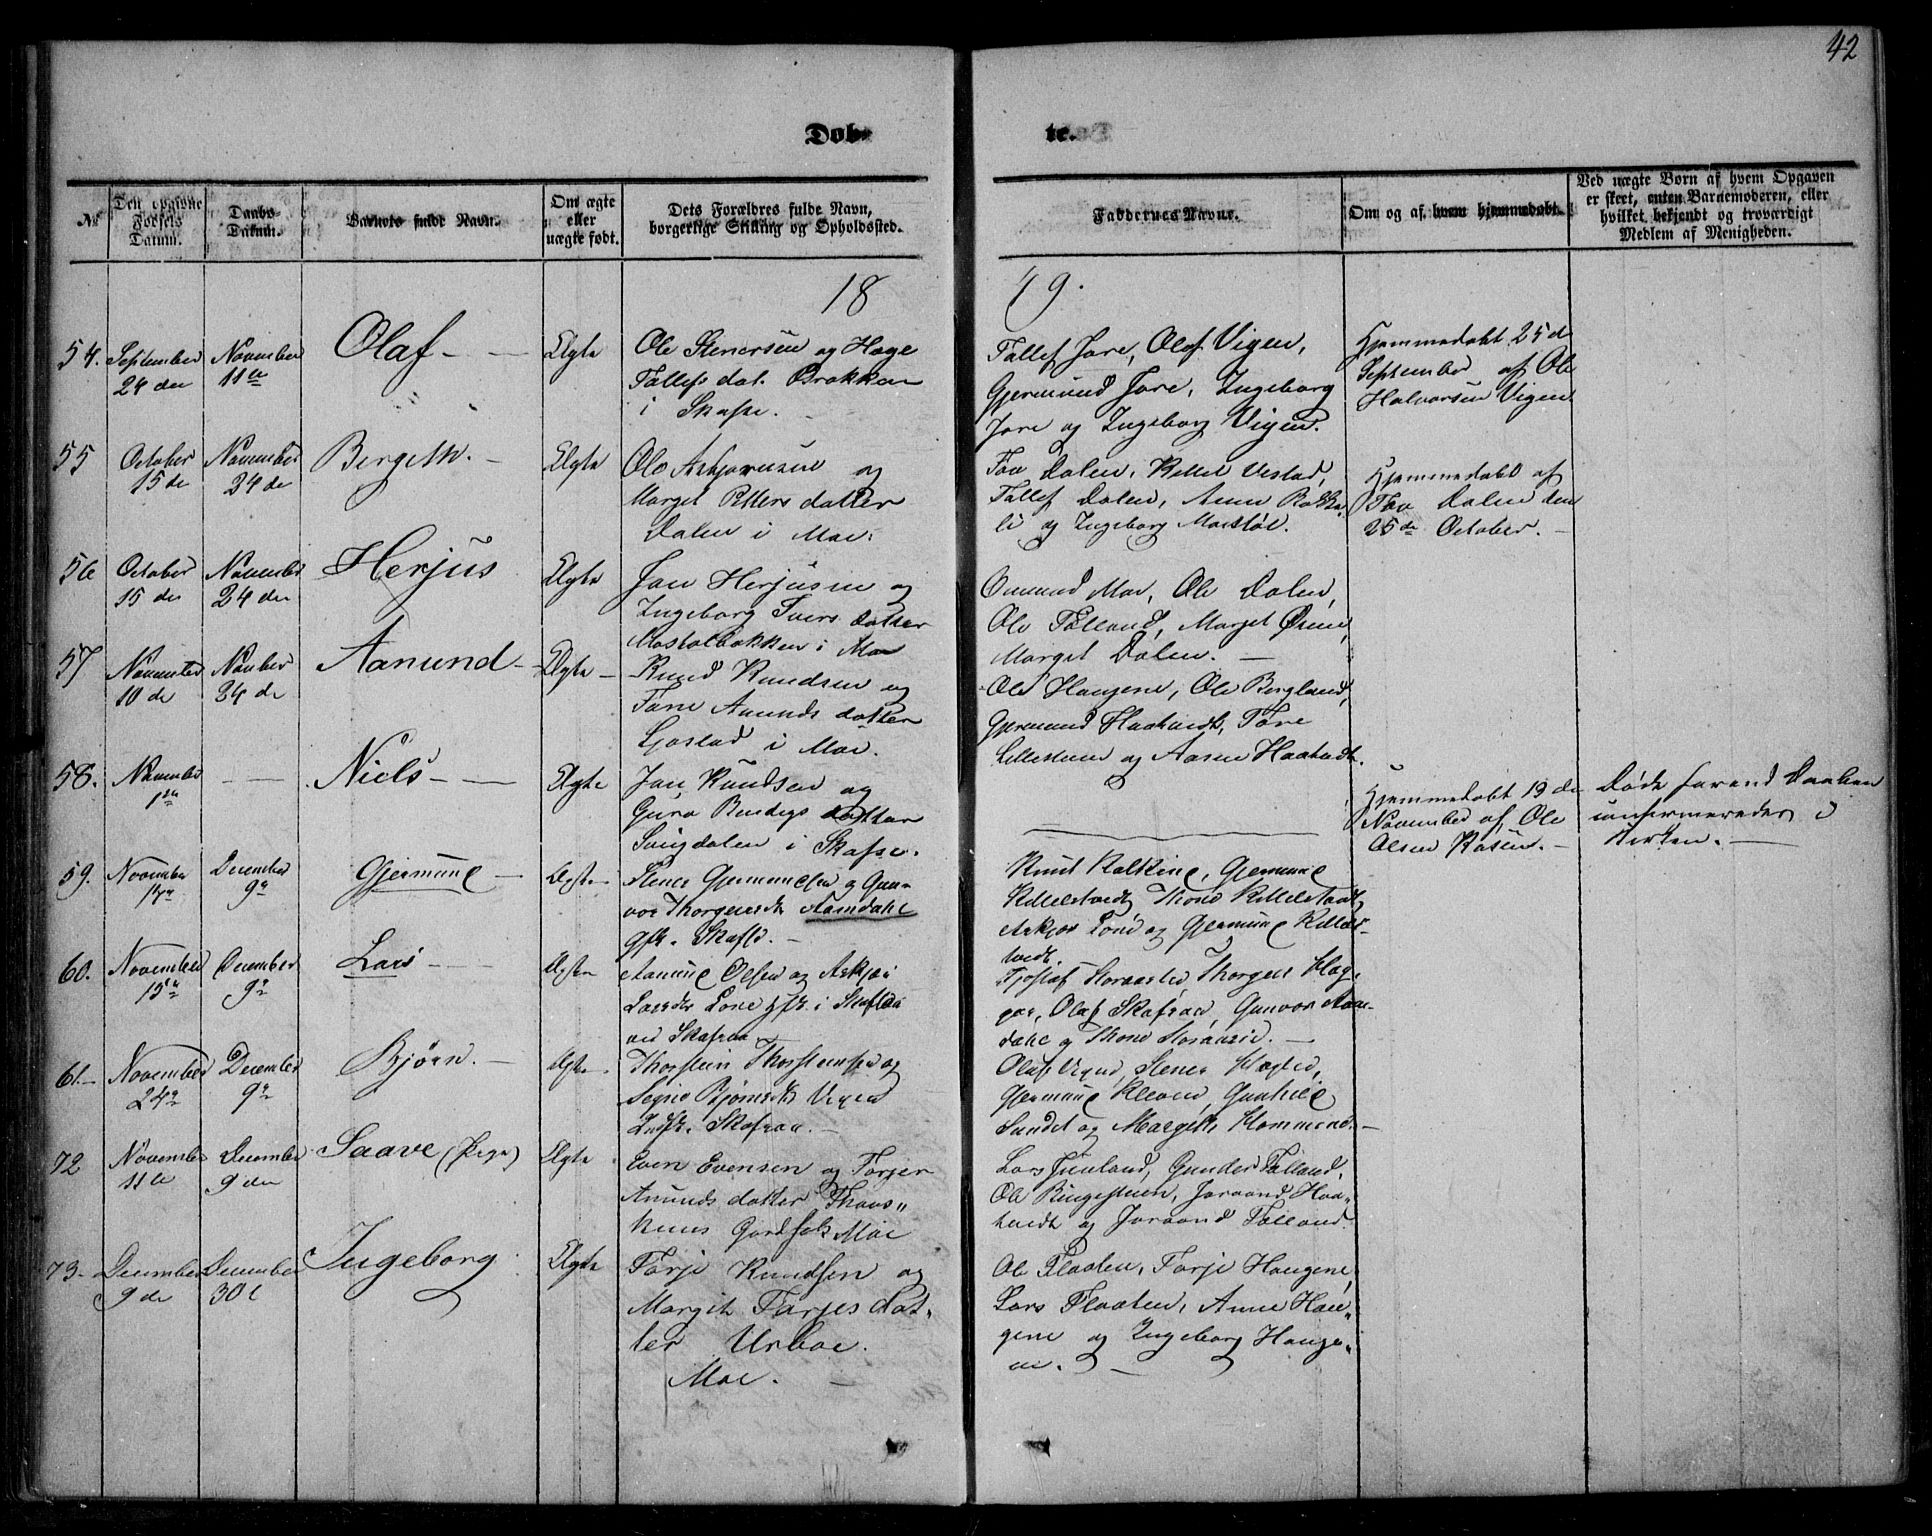 42
Døb-
te.
№
Den opgivne Fødsels Datum.
Daabs-Datum.
Barnets fulde Navn.
Om ægte eller uægte født.
Dets Forældres fulde Navn, borgerlige Stilling og Opholdssted.
Faddernes Navne.
Om og af hvem hjemmedøbt.
Ved uægte Børn af hvem Opgaven
er skeet, enten Barnemoderen, eller
hvilket bekjendt og troværdigt
Medlem af Menigheden.
18
49.
54. September 24 den
November 11te
Olaf
Ægte
Ole Stenersen og Hæge
Tallefsdat. Brokken
i Skafse.
Tallef Jore, Olof Vigen,
Gjermund Jore, Ingeborg
Jore og Ingeborg Vigen.
Hjemmedøbt 25d
September af Ole
Halvorsen Vigen
55 October 15de
November 24de
Bergith.
Ægte
Ole Asbjørnsen og
Marget Petters datter
Dalen i Moe.
Tov Dalen, Kittel Vestad,
Tallef Dalen, Anne Bakka-
li og Ingeborg Mostøl.
Hjemmedøbt af
Tov Dalen den
25de October.
56 October 15 de
November 24 de
Herjus
Ægte
Jon Herjusen og
Ingeborg Ivers datter
Mostølbakken i Moe
Ommund Moe, Ole Dalen,
Ole Tølland, Marget Øien,
Marget Dalen.
57 November 10 de
November 24 de
Aanund
Ægte
Knud Knudsen og
Tone Anunds datter
Ljostad i Moe.
Ole Haugene, Ole Bergland,
Gjermund Haatvedt, Tore
Lillesteen og Aasne Haatvedt.
58. November
Niels
Ægte
Jon Knudsen og
Guro Bendigs datter
Songdalen i Skafse.
Hjemmedøbt 19 de
November af Ole
Olsen Rosen.
Døde førend Daaben
confirmeredes i
Kirken.
59. November
December 9de
Gjermund
Ægte
Stener Gjermundsen og Gun-
vor Thorgeirsdt Aamdahl
Gfk. Skafse.
Knut Kalskind, Gjermund
Killeltvedt, Thone Killeltvedt,
Askjør Lone og Gjermund Killelt-
vedt.
60. November
December 9de
Lars
Ægte
Aanund Olsen og Askjær
Larsdtr Lone gfk. i Skafse
ved Skafsaa
Tjøstaf Storaaslid, Thorgeir Hæg-
gar, Olaf Skafsaa, Gunvor Aam-
dahl og Thone
61 November 24de
December 9de
Bjørn.
Ægte
Thorstein Thorsteinsen og
Signe Bjørnsdtr Vigen
Skafsaa.
Olaf Vigen, Stener Hæglid,
Gjermund Kleven, Gunhild
Sundet og Margith
72 November 11te
December 9 den
Saave (Pige)
Ægte
Even Evensen og Torjer
Anunds datter Thovs-
huus Gaardfolk Moe
Lars Juuland, Gunder Tølland,
Ole Ringesteen, Joraand Haa-
tvedt og Joraand Tølland
73. December 9 de
December 30t
Ingeborg
Ægte
Torje Knudsen og
Margit Torjes dat-
ter Urboe.
Moe.
Ole Flaaten, Torje Haugene,
Lars Flaaten, Anne Hau-
gene og Ingeborg Hauge-
ne.